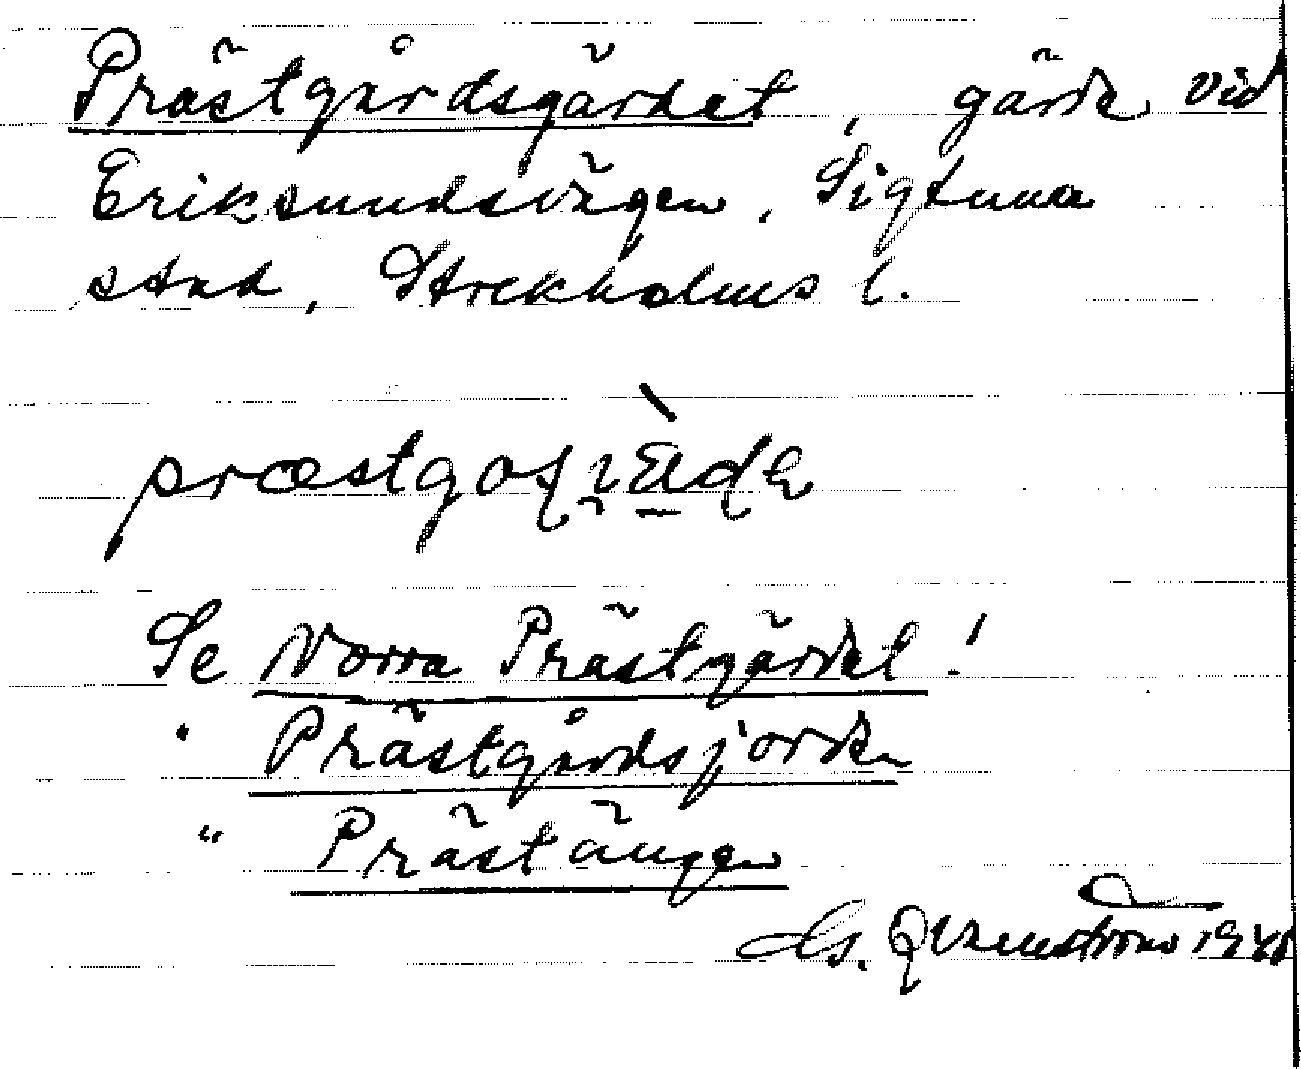 Prästgårdsgärdet, gärde vid
Eriksundsvägen, Sigtuna
stad, Stockholms l.
Se Norra Prästgärdet!
" Prästgårdsjorden
" Prästängen
Qvarnström 194